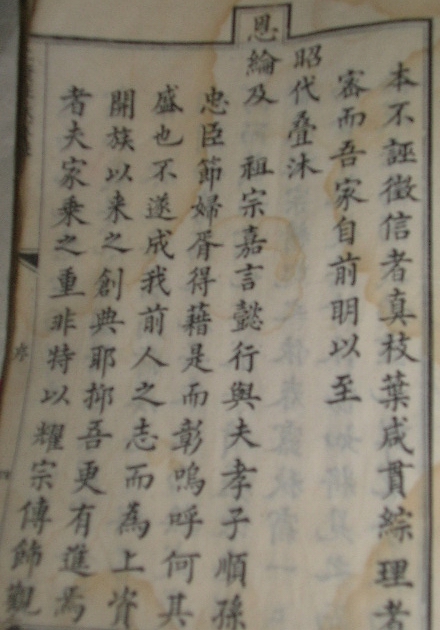 本不誣徵信者真枝葉咸貫綜理者
審而吾家自前明以至
昭代叠沐
恩綸及 祖宗嘉言懿行與夫孝子順孫
忠臣節婦胥得藉是而彰嗚呼何其
盛也不遂成我前人之志而為上寳
開族以来之創典耶抑吾更有進焉
者夫家乘之重非特以耀宗傳飾觀
序